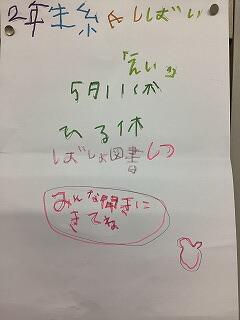 2年生紙しばい
「えい」
5月11休
ひる休
ばしょ図書しつ
みんな聞きに
きてね